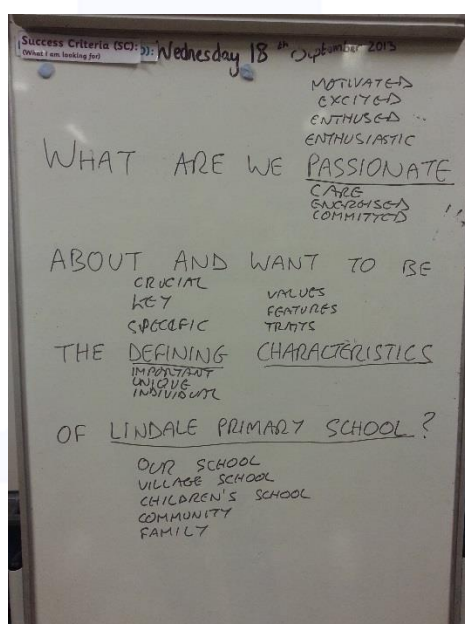 Success Criteria (SC): Wednesday 18th September 2013
(What I am looking for)
MOTIVATED
EXCITED
ENTHUSED
ENTHUSIASTIC
WHAT ARE WE PASSIONATE
CARE
ENERGISED
COMMITTED
ABOUT AND WANT TO BE
CRUCIAL
KEY VALUES
FEATURES
SPECIFIC TRAITS
THE DEFINING CHARACTERISTICS
IMPORTANT
UNIQUE
INDIVIDUAL
OF LINDALE PRIMARY SCHOOL?
OUR SCHOOL
VILLAGE SCHOOL
CHILDREN'S SCHOOL
COMMUNITY
FAMILY